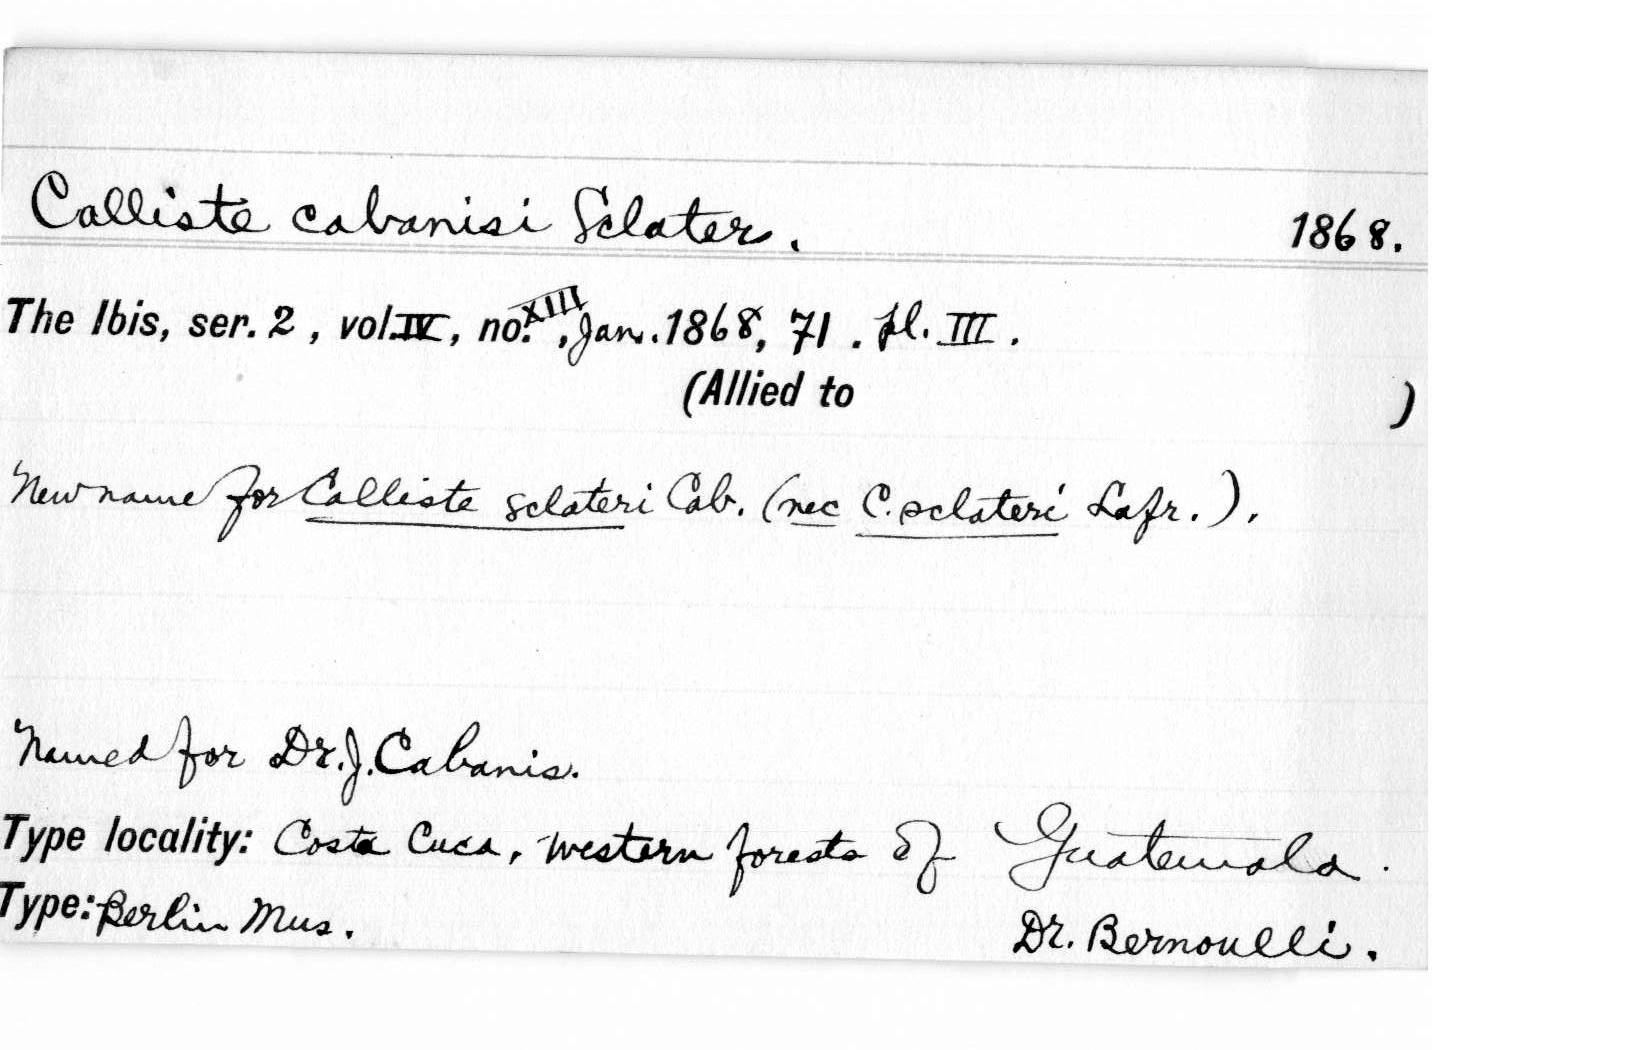 Calliste cabanisi Sclater. 1868.
The Ibis, ser. 2, vol. IV, no. XIII, Jan. 1868, 71. pl. III.
(Allied to )
New name for Calliste sclateri Cab. (nec C. sclateri Lafr.).
Named for Dr. J. Cabanis.
Type locality: Costa Cuca, western forests of Guatemala.
Type: Berlin Mus. Dr. Bernoulli.